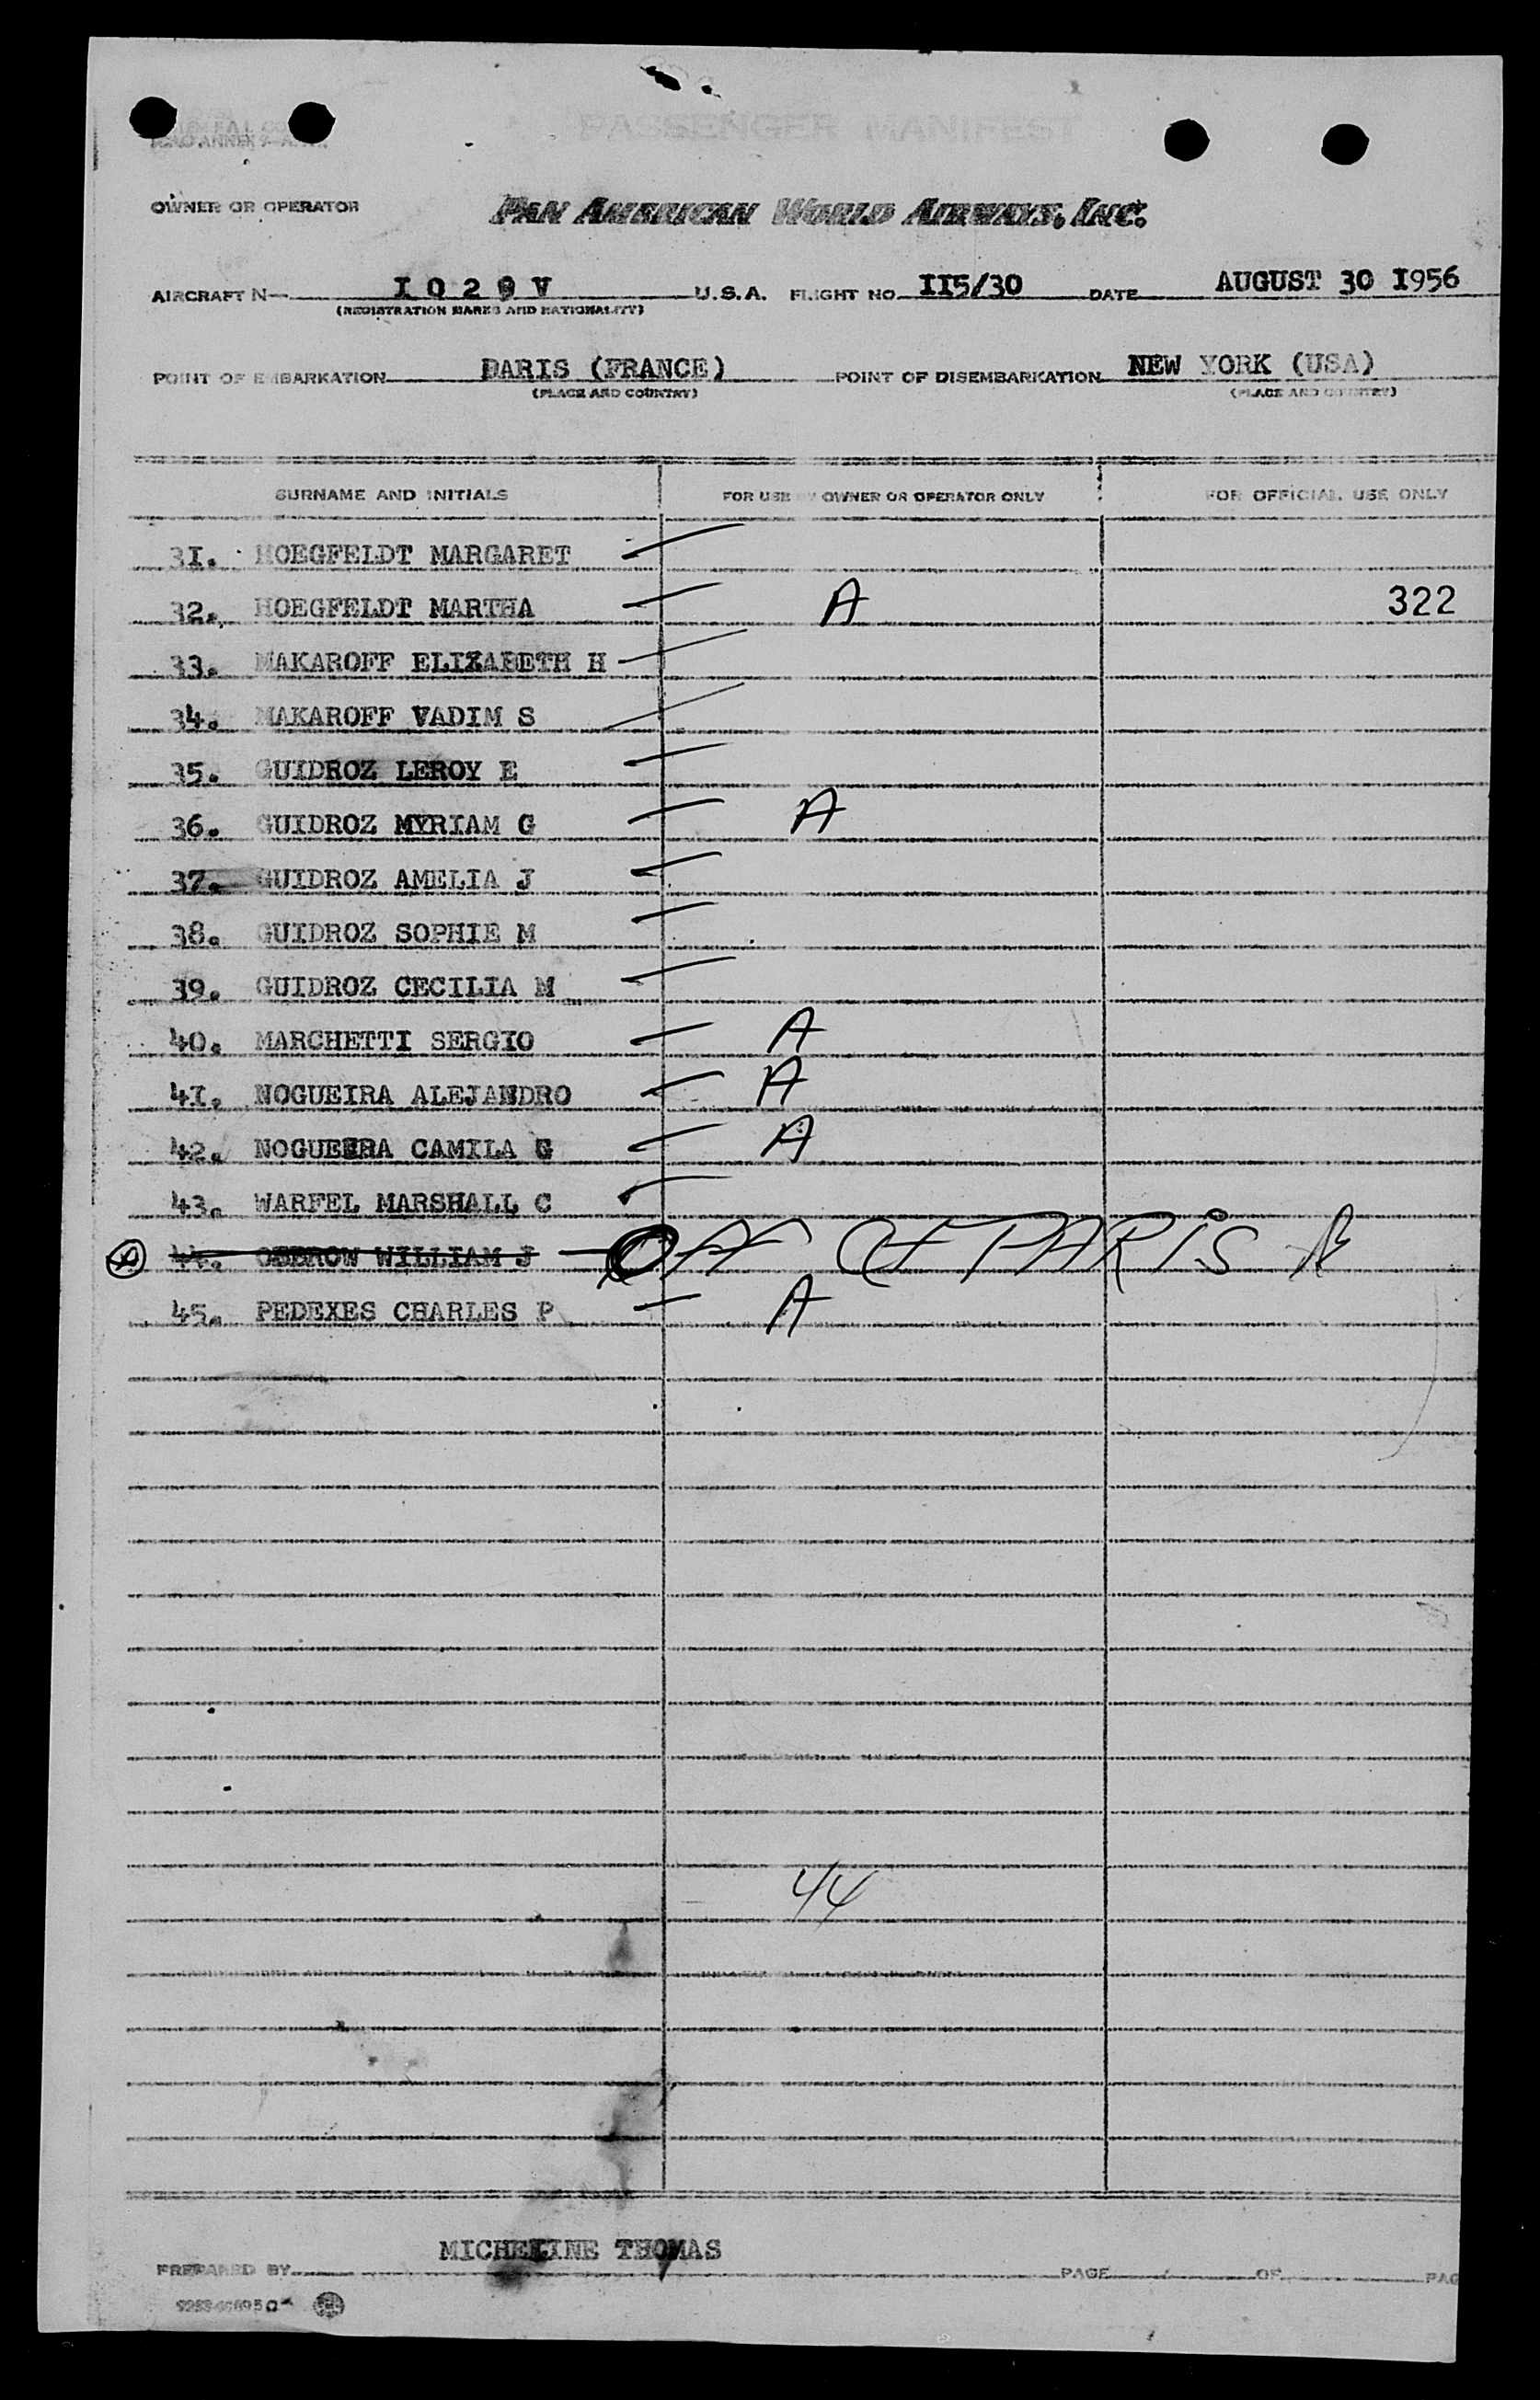 PASSENGER MANIFEST
OWNER OR OPERATOR PAN AMERICAN WORLD AIRWAYS, INC.
AIRCRAFT N I 0 2 9 V U.S.A. FLIGHT NO II5/30 DATE AUGUST 30 I956
(REGISTRATION MARKS AND NATIONALITY)
POINT OF EMBARKATION PARIS (FRANCE) POINT OF DISEMBARKATION NEW YORK (USA)
(PLACE AND COUNTRY) (PLACE AND COUNTRY)
SURNAME AND INITIALS FOR USE BY OWNER OR OPERATOR ONLY FOR OFFICIAL USE ONLY
3I. HOEGFELDT MARGARET
32. HOEGFELDT MARTHA A 322
33. MAKAROFF ELIZABETH H
34. MAKAROFF VADIM S
35. GUIDROZ LEROY E
36. GUIDROZ MYRIAM G A
37. GUIDROZ AMELIA J
38. GUIDROZ SOPHIE M
39. GUIDROZ CECILIA M
40. MARCHETTI SERGIO A
4I. NOGUEIRA ALEJANDRO A
42. NOGUEIRA CAMILA G A
43. WARFEL MARSHALL C
44. WILLIAM J OFF PARIS
45. PEDEXES CHARLES P A
44
PREPARED BY MICHELINE THOMAS PAGE OF PAG